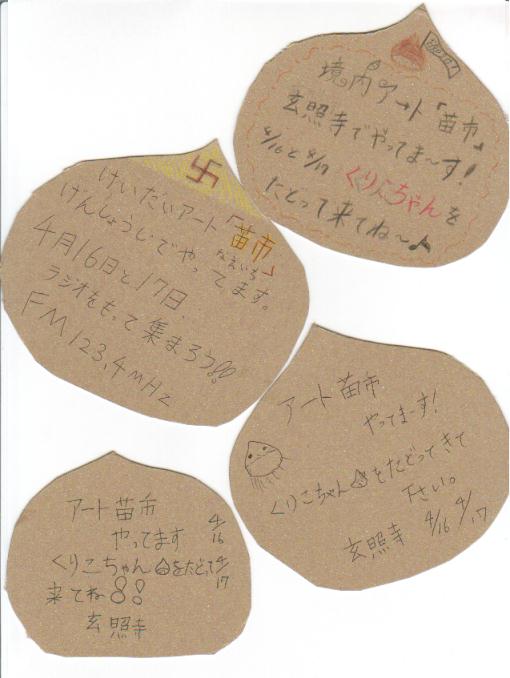 境内アート「苗市」
玄照寺でやってま〜す!
4/16と4/17 くりこちゃんを
たどって来てね〜♪
けいだいアート「苗市」
なえいち
げんしょうじでやってます。
4月16日と17日.
ラジオをもって集まろう!!
FM 123.4MHz
アート苗市
やってまーす!
くりこちゃんをたどってきて
下さい。
玄照寺 4/16 4/17
アート苗市
やってます 4/16
くりこちゃんをたどって 4/17
来てね!!
玄照寺